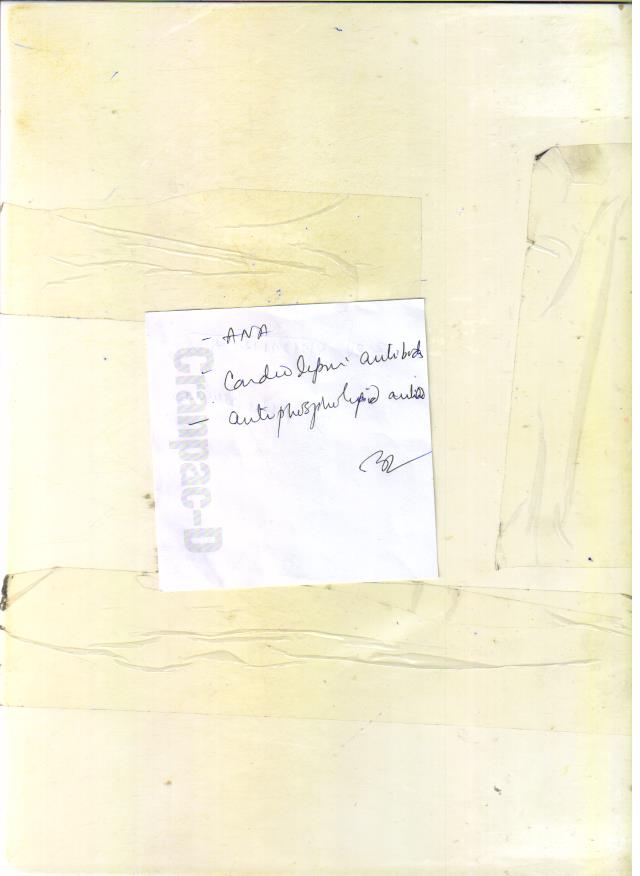 - ANA
- Cardiolipin antibody
- antiphospholipid
Cranpac-D